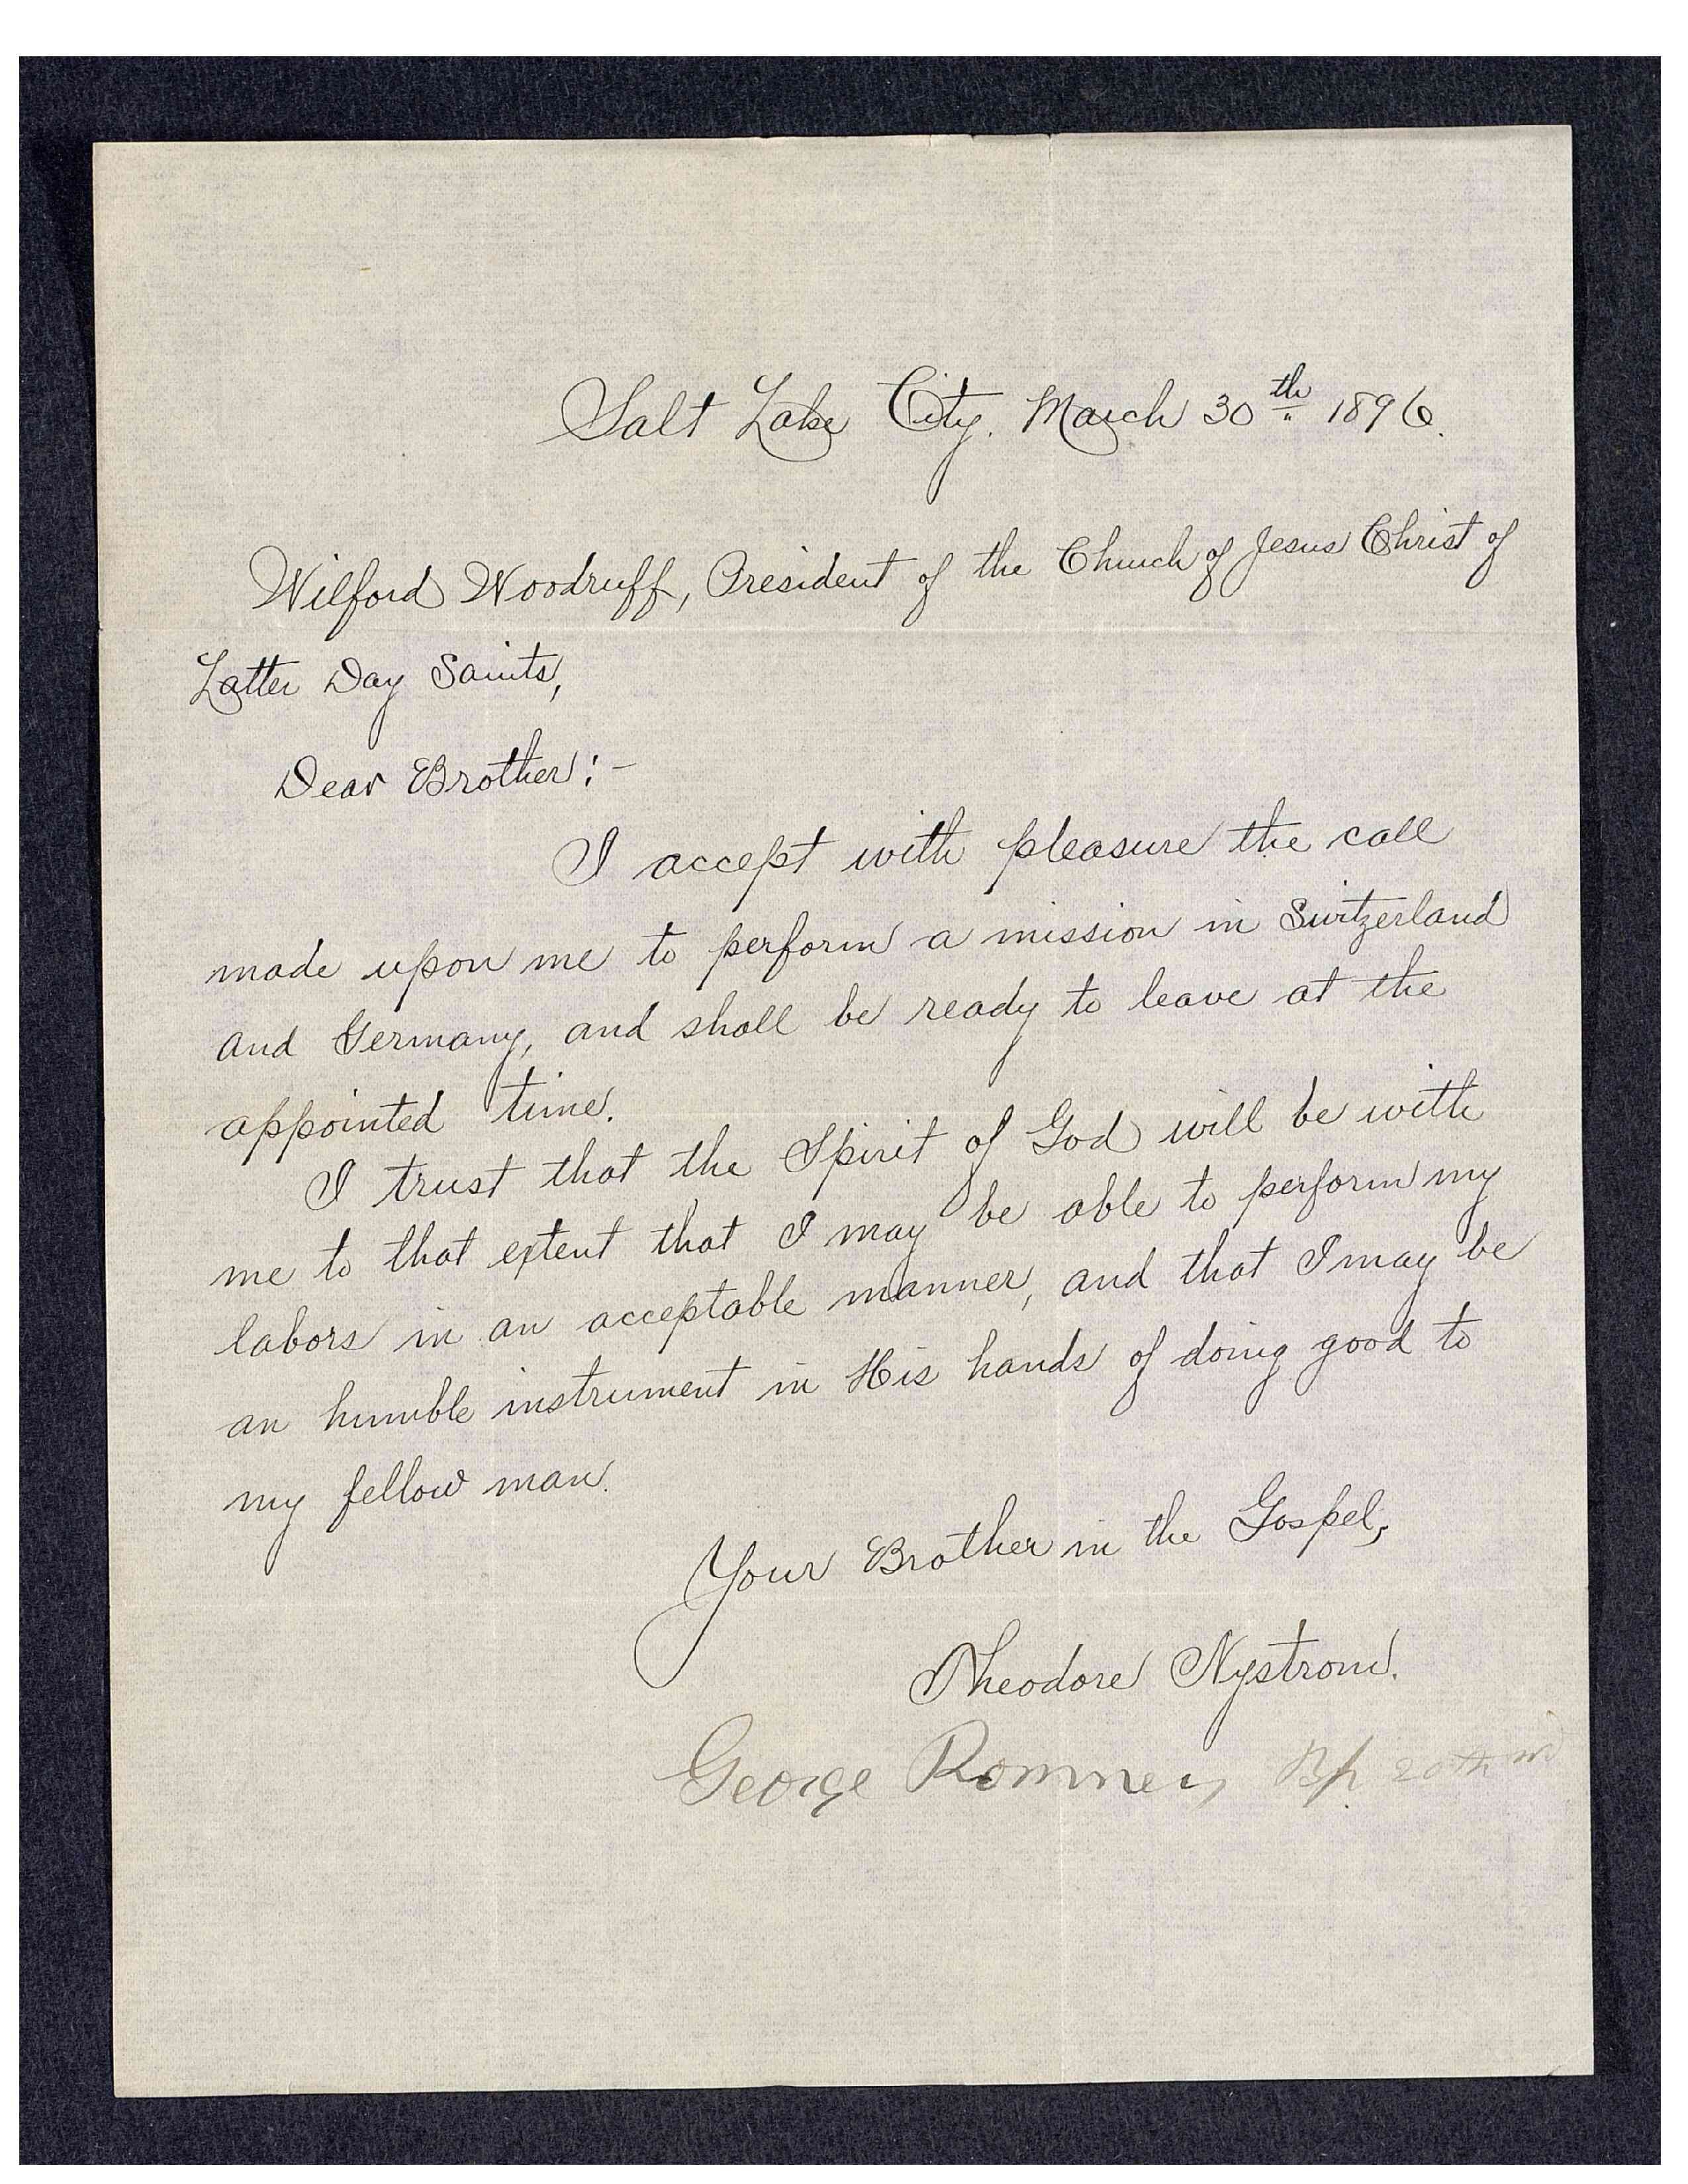 Salt Lake City. March 30th 1896.
Wilford Woodruff, President of the Church of Jesus Christ of
Latter Day Saints,
Dear Brother:-
I accept with pleasure the call
made upon me to perform a mission in Switzerland
and Germany, and shall be ready to leave at the
appointed time.
I trust that the Spirit of God will be with
me to that extent that I may be able to perform my
labors in an acceptable manner, and that I may be
an humble instrument in His hands of doing good to
my fellow man.
Your Brother in the Gospel,
Theodore Nystrom.
George Romney Bp 20th Wd